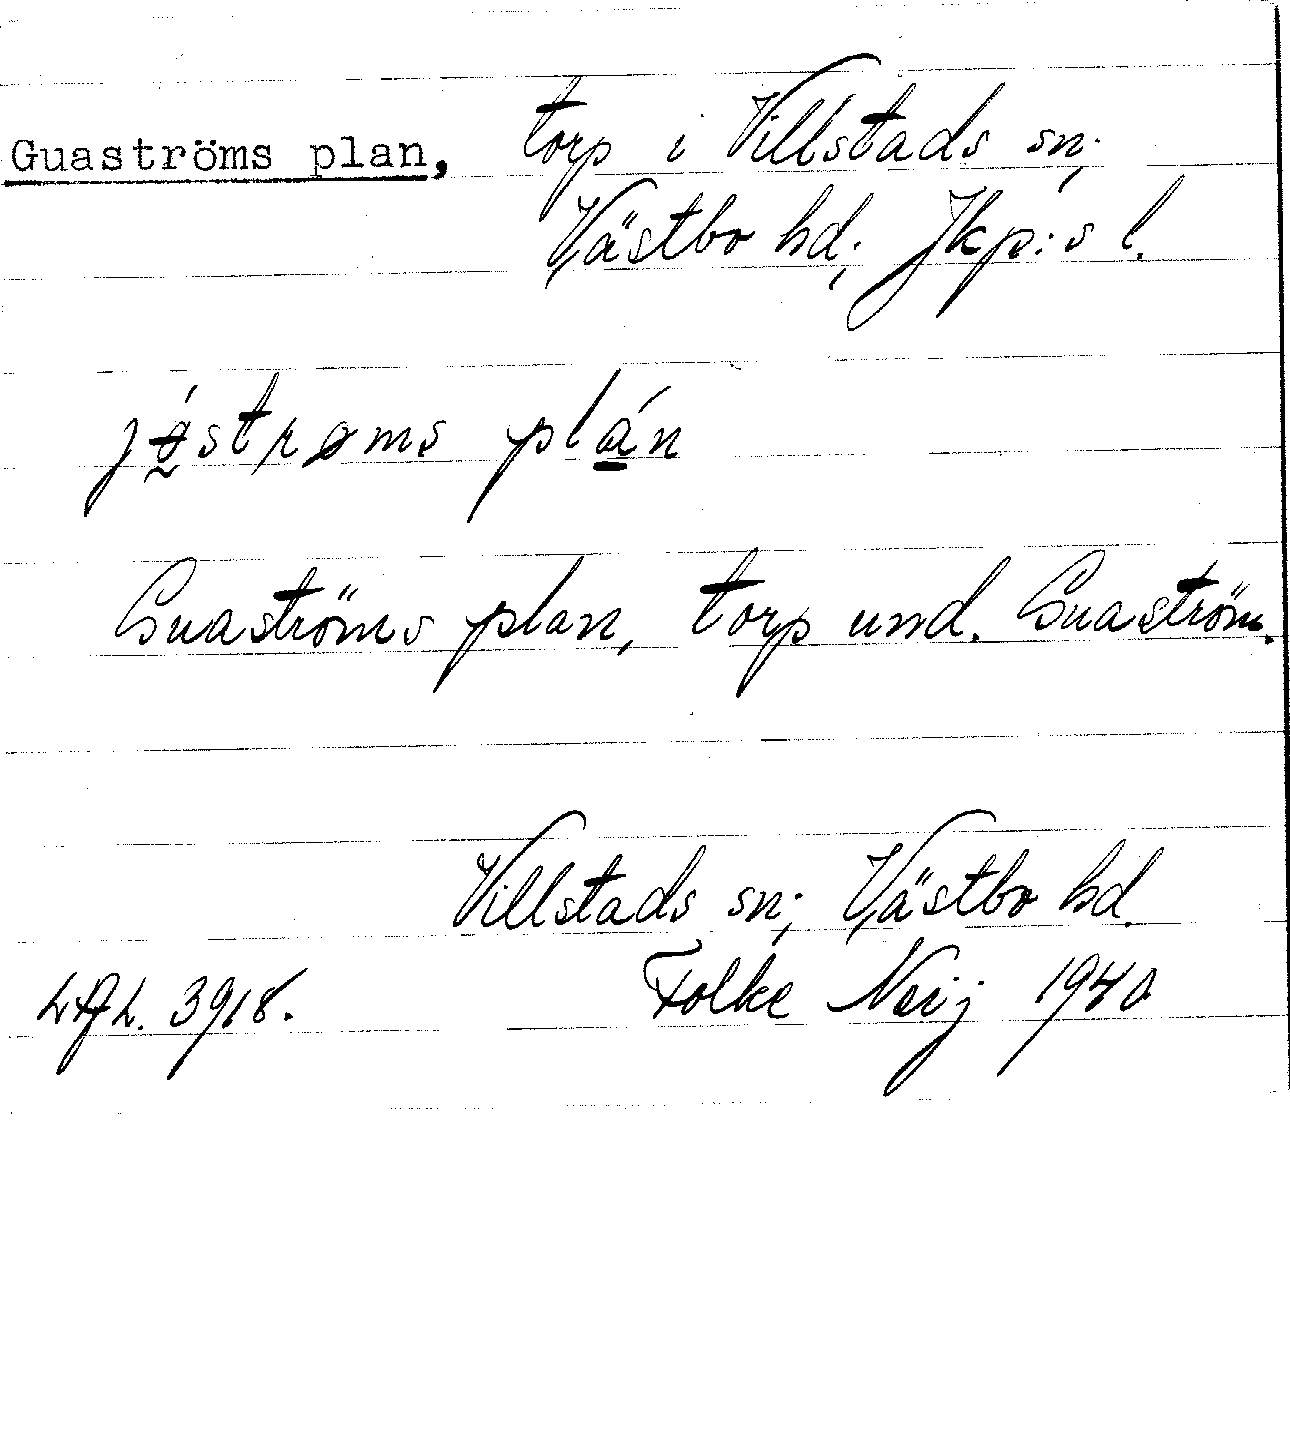 Guaströms plan, torp i Villstads sn;
Västbo hd; Jkp:s l.
plán
Guaströms plan, torp und. Guaström.
Villstads sn; Västbo hd.
3918. Folke Neij 1940